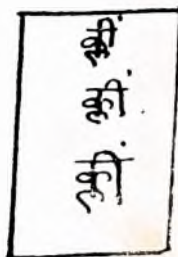 क्लीं
क्लीं
क्लीं